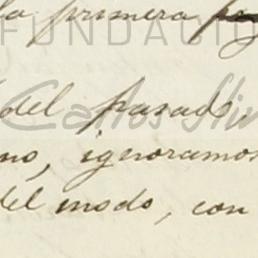 la primera
FUNDACIÓ
del pasado,
Carlos Slim
no, ignoramos
del modo, con